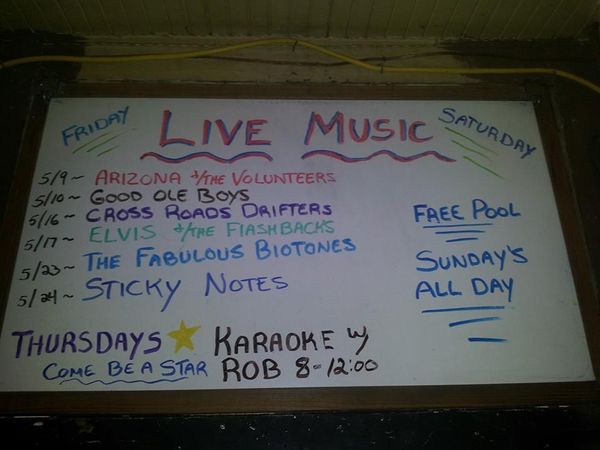 FRIDAY LIVE MUSIC SATURDAY
5/9~ ARIZONA +/THE VOLUNTEERS
5/10~ GOOD OLE BOYS
5/16~ CROSS ROADS DRIFTERS
5/17~ ELVIS +/THE FLASHBACKS
5/23~ THE FABULOUS BIOTONES
5/24~ STICKY NOTES
FREE POOL
SUNDAY'S
ALL DAY
THURSDAYS KARAOKE W/
COME BE A STAR ROB 8-12:00